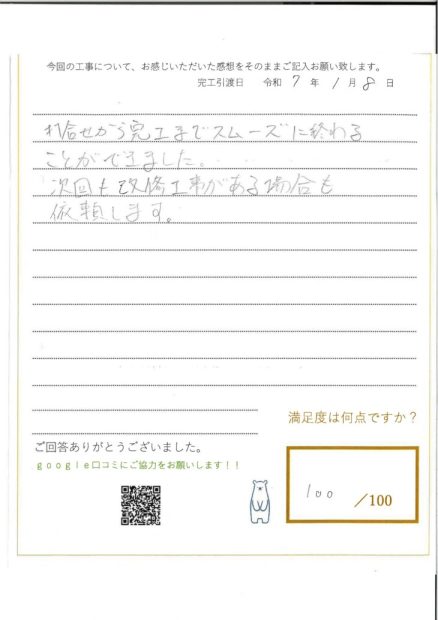 今回の工事について、お感じいただいた感想をそのままご記入お願い致します。
完工引渡日 令和 7 年 1 月 8 日
打合せから完工までスムーズに終わる
ことができました。
次回も改修工事がある場合も
依頼します。
満足度は何点ですか？
ご回答ありがとうございました。
google口コミにご協力をお願いします！！
100 /100